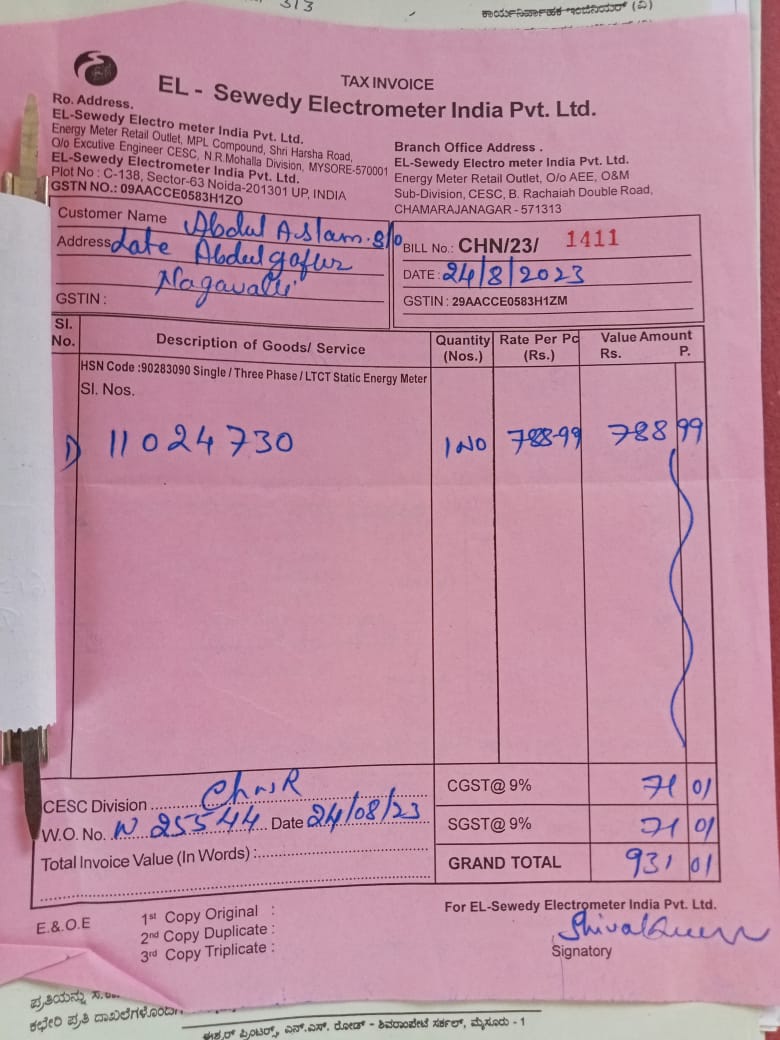 313
ಕಾರ್ಯನಿರ್ವಾಹಕ ಇಂಜಿನಿಯರ್ (ವಿ)
TAX INVOICE
EL - Sewedy Electrometer India Pvt. Ltd.
Ro. Address.
EL-Sewedy Electro meter India Pvt. Ltd.
Energy Meter Retail Outlet, MPL Compound, Shri Harsha Road,
O/o Excutive Engineer CESC, N.R.Mohalla Division, MYSORE-570001
EL-Sewedy Electrometer India Pvt. Ltd.
Plot No : C-138, Sector-63 Noida-201301 UP, INDIA
GSTN NO.: 09AACCE0583H1ZO
Branch Office Address .
EL-Sewedy Electro meter India Pvt. Ltd.
Energy Meter Retail Outlet, O/o AEE, O&M
Sub-Division, CESC, B. Rachaiah Double Road,
CHAMARAJANAGAR - 571313
Customer Name Abdul Aslam. S/o
Address Late Abdul gafur
Nagavalli
GSTIN :
BILL No.: CHN/23/ 1411
DATE : 24/8/2023
GSTIN : 29AACCE0583H1ZM
Sl. No. Description of Goods/ Service Quantity (Nos.) Rate Per Pc (Rs.) Value Amount Rs. P.
HSN Code :90283090 Single / Three Phase / LTCT Static Energy Meter
Sl. Nos.
1) 11024730 1 NO 788-99 788 99
CGST@ 9% 71 01
CESC Division ChnR
SGST@ 9% 71 01
W.O. No. N 25544 Date 24/08/23
Total Invoice Value (In Words) :
GRAND TOTAL 931 01
For EL-Sewedy Electrometer India Pvt. Ltd.
E.&.O.E
1st Copy Original :
2nd Copy Duplicate :
3rd Copy Triplicate :
Signatory
ಪ್ರತಿಯನ್ನು
ಕಛೇರಿ ಪ್ರತಿ
ಈಶ್ವರ್ ಪ್ರಿಂಟರ್ಸ್, ಎನ್.ಎಸ್. ರೋಡ್ - ಶಿವರಾಂಪೇಟೆ ಸರ್ಕಲ್, ಮೈಸೂರು - 1